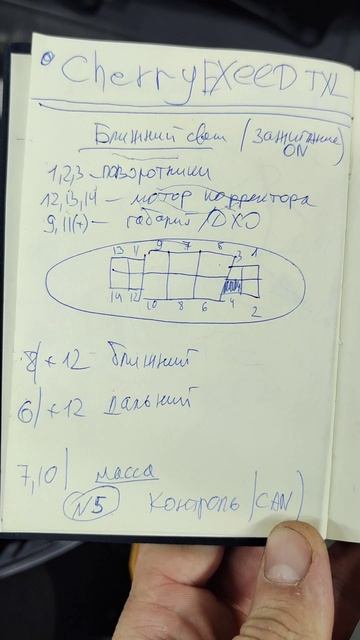 Cherry EXEED TXL
Ближний свет / Зажигание
ON
1,2,3 - поворотники
12,13,14 - мотор корректора
9,11(+) - габарит / ДХО
13 11 9 7 5 3 1
14 12 10 8 6 4 2
8 | +12 ближний
6 | +12 дальний
7,10 | масса
N5 контроль /CAN)